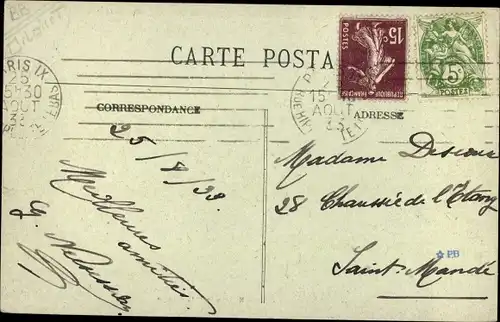 CARTE POSTA
15c
POSTES
REPUBLIQUE FRANÇAISE
5
POSTES
PARIS IX
25
15H30
AOUT
33
15
AOUT
33
CORRESPONDANCE
ADRESSE
25/8/33
Meilleures
amitiés
G.
Madame
28 Chaussée de l'Etang
PB
Saint-Mandé